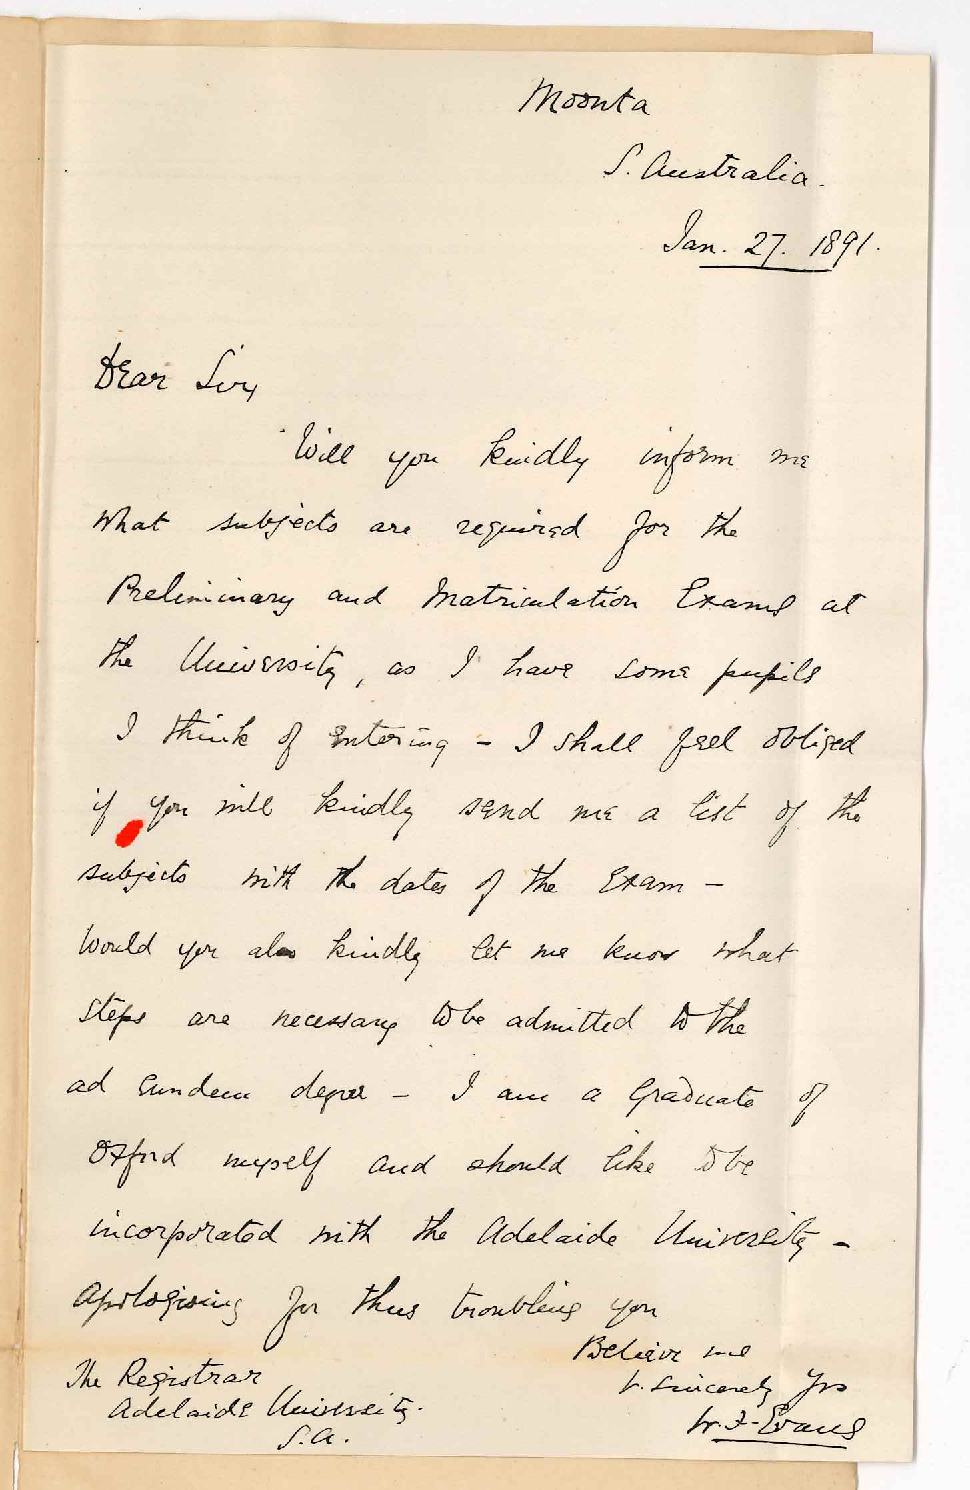 Moonta
S. Australia.
Jan. 27. 1891.
Dear Sir,
Will you kindly inform me
what subjects are required for the
Preliminary and Matriculation Exams at
the University, as I have some pupils
I think of entering - I shall feel obliged
if you will kindly send me a list of the
subjects with the dates of the Exam -
Would you also kindly let me know what
steps are necessary to be admitted to the
ad eundem degree - I am a Graduate of
Oxford myself and should like to be
incorporated with the Adelaide University -
Apologising for thus troubling you
Believe me
v. sincerely yrs
W. F. Evans
The Registrar
Adelaide University.
S.A.